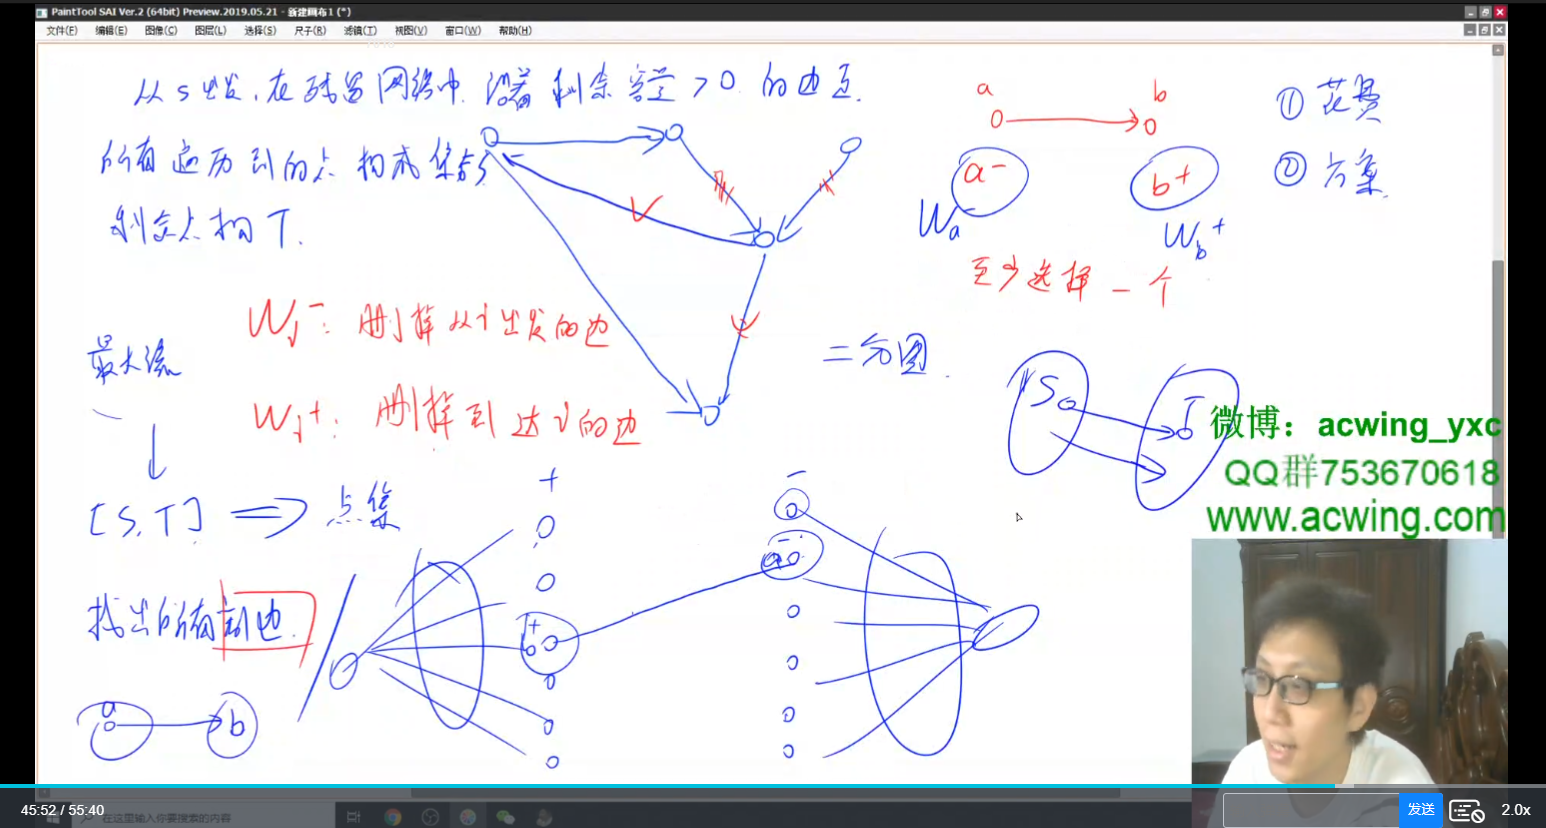 PaintTool SAI Ver.2 (64bit) Preview.2019.05.21 - 新建画布1 (*)
文件(F) 编辑(E) 图像(C) 图层(L) 选择(S) 尺子(R) 滤镜(T) 视图(V) 窗口(W) 帮助(H)
从s出发,在残留网络中 沿着剩余容量>0的边走
所有遍历到的点构成集合S
剩余点构T.
Wi-: 删掉从i出发的边
Wi+: 删掉到达i的边
a b
① 花费
② 方案
a- b+
Wa- Wb+
至少选择一个
最大流
二分图.
S T
[S, T] ⇒ 点集
找出所有割边.
+ -
a b
微博：acwing_yxc
QQ群753670618
www.acwing.com
45:52 / 55:40
在这里输入你要搜索的内容
发送
2.0x